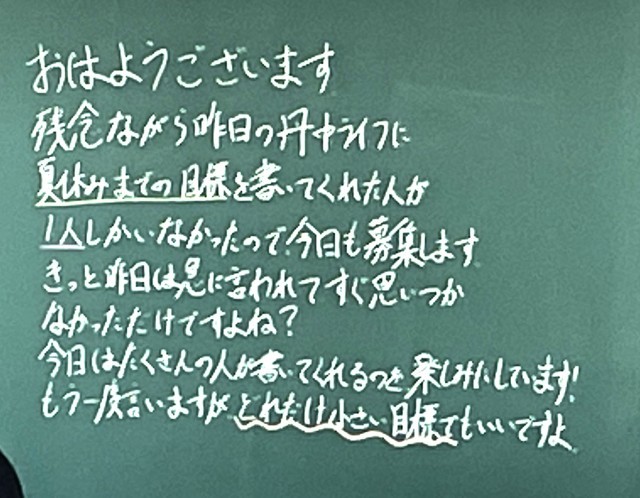 おはようございます
残念ながら昨日の丹中ライフに
夏休みまでの目標を書いてくれた人が
1人しかいなかったので、今日も募集します
きっと昨日は急に言われてすぐ思いつか
なかっただけですよね?
今日はたくさんの人が書いてくれるのを楽しみにしています!
もう一度言いますが、どれだけ小さい目標でもいいですよ